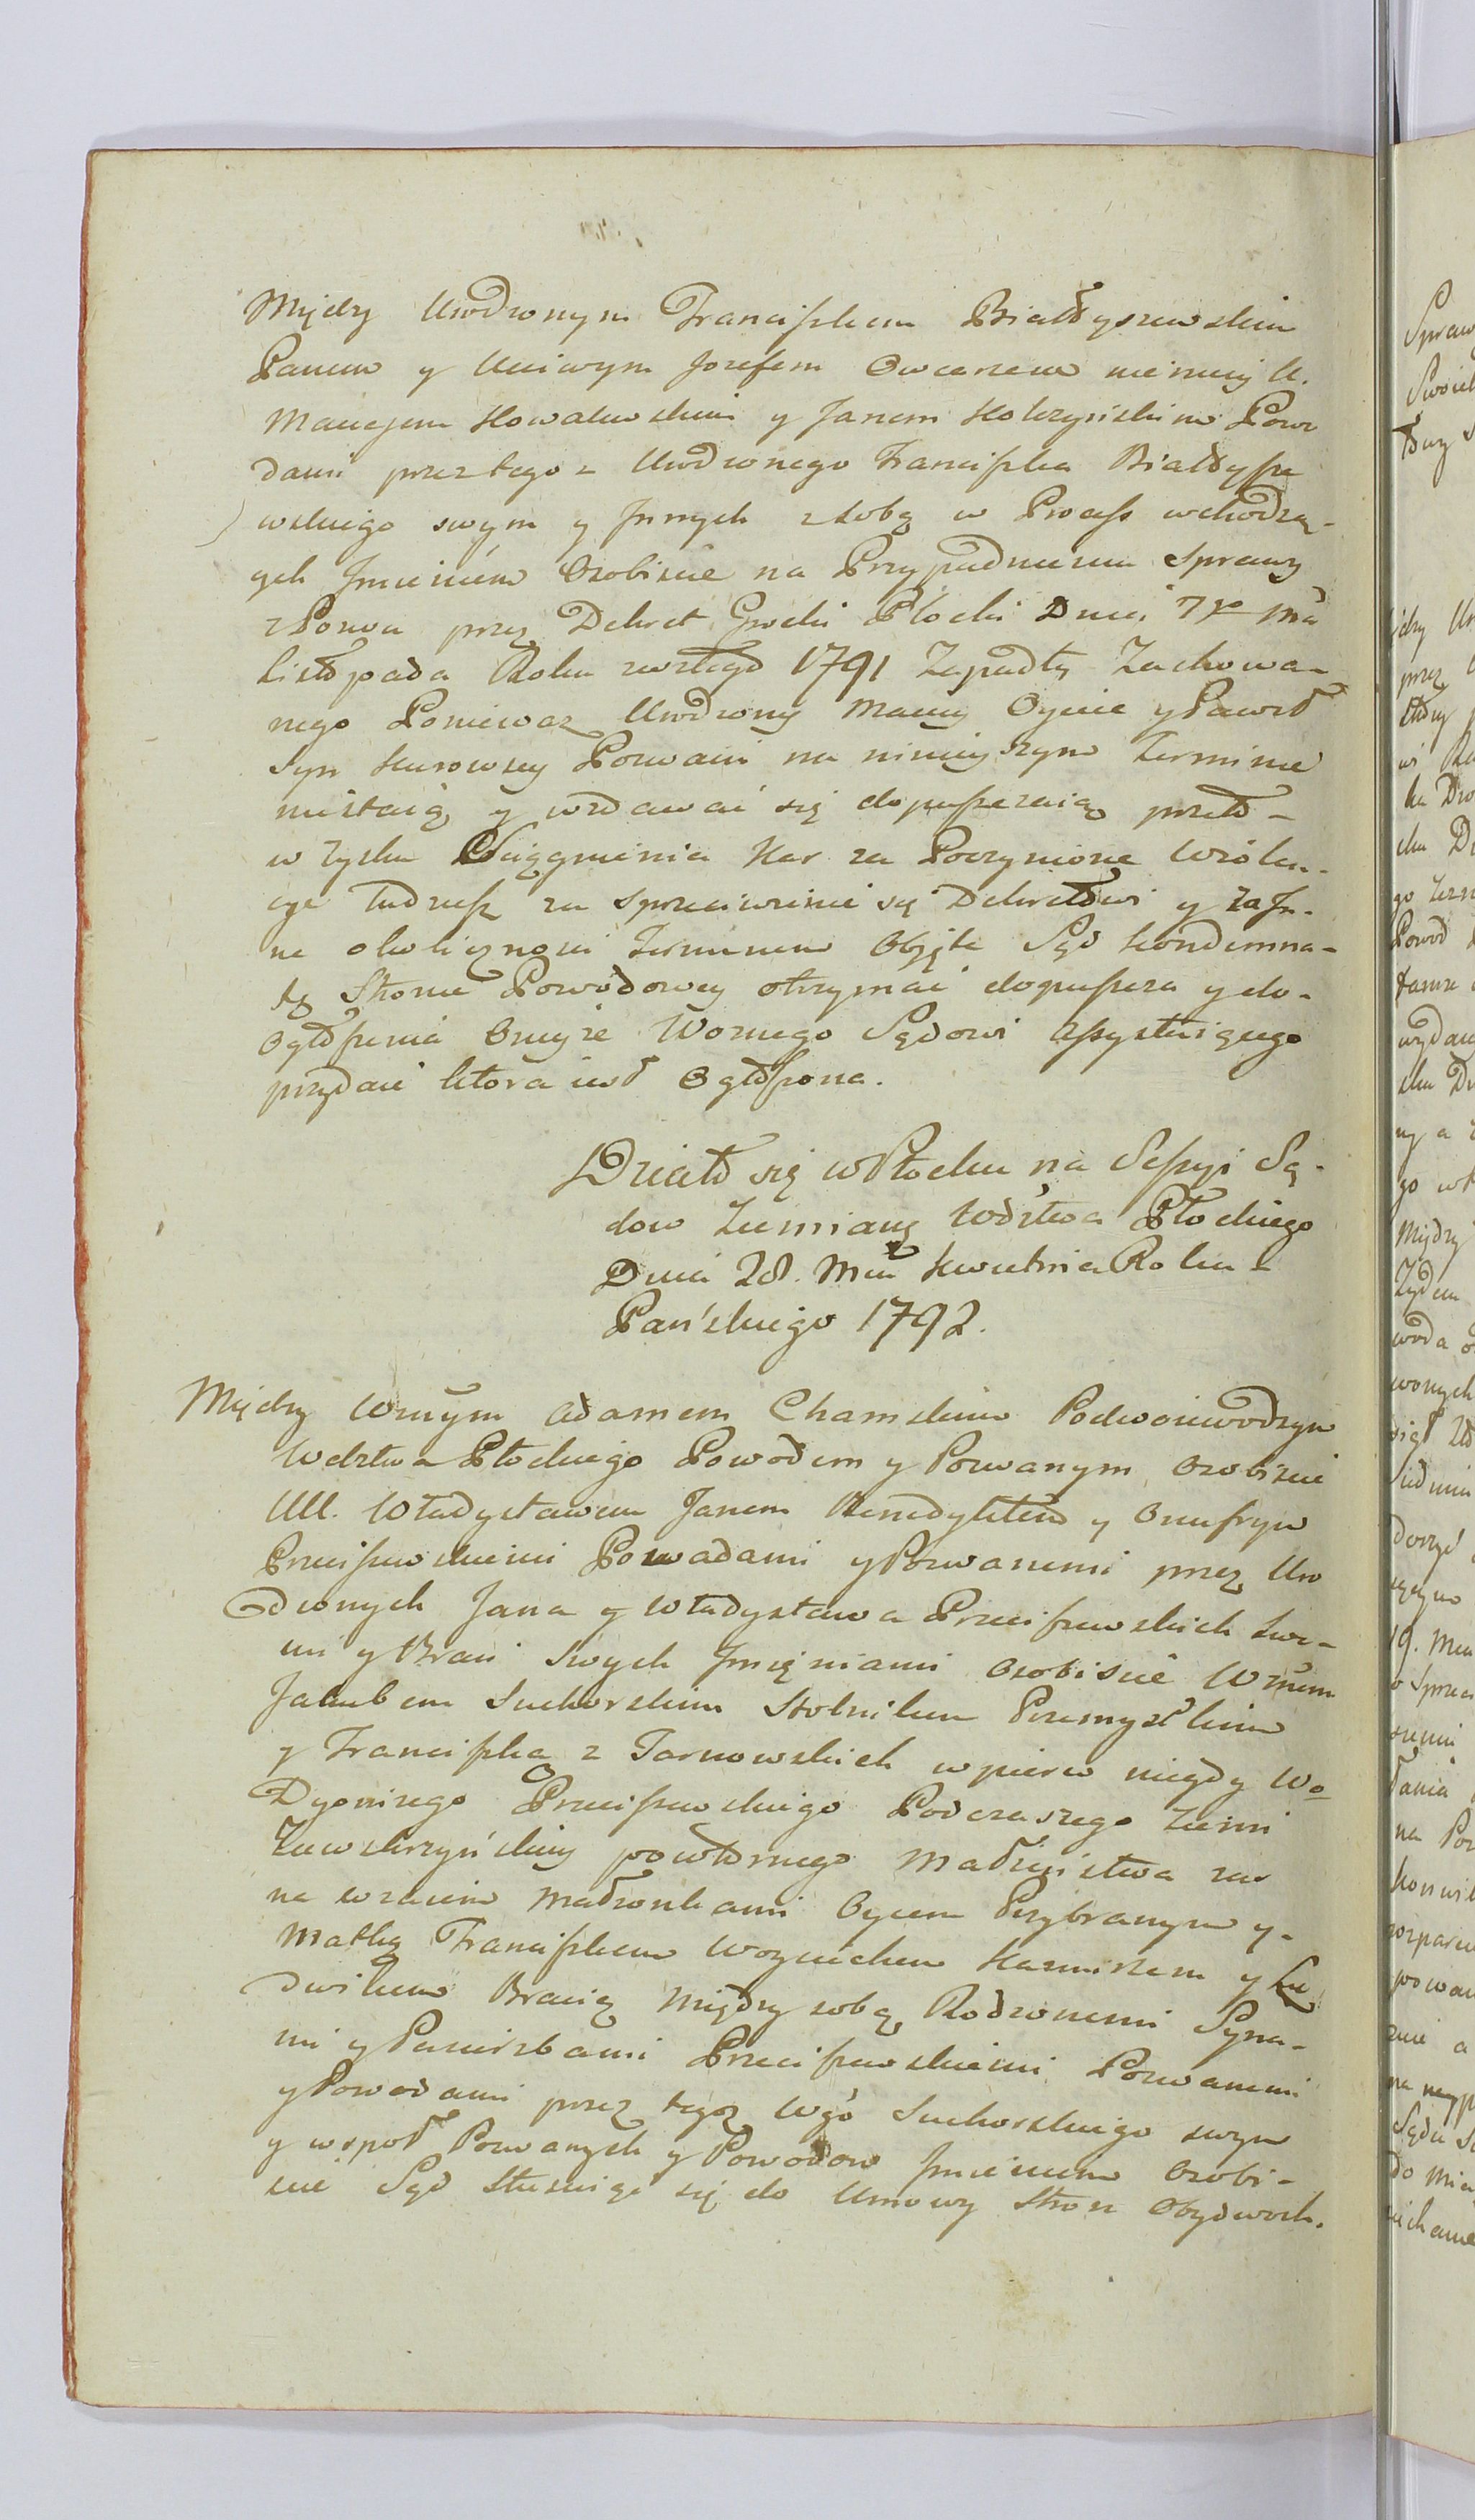 Między Urodzonym Franciszkiem Białoszewskim
Panem y Uczciwym Jozefem Owczarzem niemniey U.
Maciejem Kowalewskim y Janem Kolczyńskim Powo
dami przez tego z Urodzonego Franciszka Białoysze
wskiego swym y Innych z sobą w Process wchodzą-
cych Imieniem Osobiscie na Przypadnieniu sprawy
z Pozwu przez Dekret Grodzki Płocki Dnia 7go Mca
Listopada Roku zeszłego 1791 Zapadły Zachowa-
nego Poniewaz Urodzony Maciey Oyciec y Paweł
Syn Kurowscy Pozwani na ninieyszym Terminie
niestaią y wzdawać się dopuszczaią przeto -
w Zysku Sciągnienia Kar za Poczynione Wiolen-
cye tudziesz za sprzeciwienie się Dekretowi y za In-
ne okoliczności Terminem Objęte Sąd kondemna-
tę Stronie Powodowey otrzymać dopuszcza y do-
ogłoszenia Oneyże Woznego Sądowi Assystuiącego
przydaie ktora iest Ogłoszona.
Działo się w Płocku na Sessyi Są-
dow Ziemiany Wdztwa Płockiego
Dnia 28. Mca Kwietnia Roku
Pańskiego 1792.
Między Wnym Adamem Chamskim Podwoiewodzym
Wdztwa Płockiego Powodem y Pozwanym Osobiscie
UU. Władysławem Janem Benedyktem y Onufrym
Przeciszewskiemi Powodami y Pozwanemi przez Uro
dzonych Jana y Władysława Przeciszewskich swe-
mi y Braci swych Imięniami Osobiscie Wnem
Jakubem Suchorskim Stolnikiem Przemyslkim
y Franciszką z Tarnowskich w pierw niegdy Wo
Dyonizego Przeciszewskiego Podczaszego Ziemi
Zawskrzyńskiey powtornego Małżeństwa zas
na wzaiem Małżonkami Oycem Przybranym y -
Matką Franciszkiem Woyciechem Kazmierzem y Lu
dwikiem Bracią Między sobą Rodzonemi Syna-
mi y Pasierzbami Przeciszewskiemi Pozwanemi
y Powodami przez tegoz Wgo Suchorskiego swym
y wspoł Pozwanych y Powodow Imieniem Osobi-
scie Sąd stusuiąc się do Umowy Stron Obydwoch.